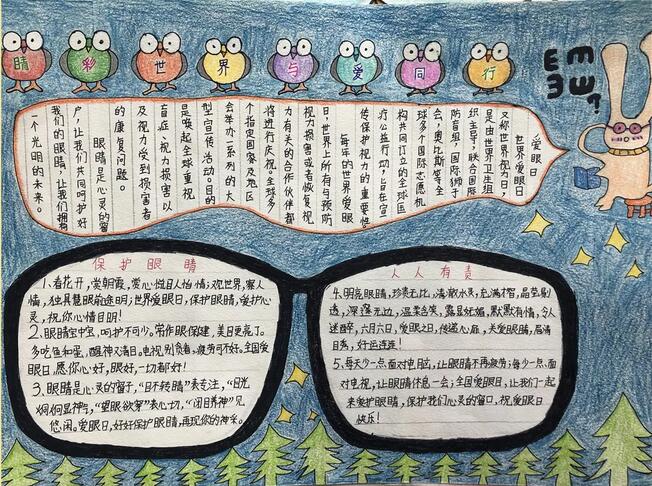 睛彩世界与爱同行
E m E m ?
爱眼日
世界爱眼日
又称世界视力日，
是由世界卫生组
织主导，联合国际
防盲组，国际狮子
会，奥比斯等全
球多个国际志愿机
构共同订立的全球医
疗公益行动，旨在宣
传保护视力的重要性。
每年的世界爱眼
日，世界上所有与预防
视力损害或者恢复视
力有关的合作伙伴都
将进行庆祝。全球多
个指定国家及地区
会举办一系列的大
型宣传活动。目的
是唤起全球重视
盲症、视力损害以
及视力受到损害者
的康复问题。
眼睛是心灵的窗
户，让我们共同呵护好
我们的眼睛，让我们拥有
一个光明的未来。
保护眼睛
1、看花开，赏朝霞，赏心悦目人怡情；观世界，察人
情，独具慧眼前途明；世界爱眼日，保护眼睛，爱护心
灵，祝你心情日明！
2、眼睛宝中宝，呵护不可少。常作眼保健，美目更亮丁。
多吃鱼和蛋，醒神又清目。电视别贪看，疲劳可不好。全国爱
眼日，愿你心好，眼好，一切都好！
3、眼睛是心灵的窗户，"目不转睛"表专注，"目光
炯炯显神气，"望眼欲穿"表心切，"闭目养神"见
悠闲。爱眼日，好好保护眼睛，再现你的神采。
人人有责
4、明亮眼睛，珍贵无比，清澈水灵，充满才智，晶莹剔
透，深邃无边，温柔含笑，露显妩媚，默默有情，令人
迷醉，六月六日，爱眼之日，传递心扉，关爱眼睛，眉清
目秀，好运连连！
5、每天少一点面对电脑，让眼睛不再疲劳；每少一点，面
对电视，让眼睛休息一会；全国爱眼日，让我们一起
来爱护眼睛，保护我们心灵的窗口，祝爱眼日
快乐！